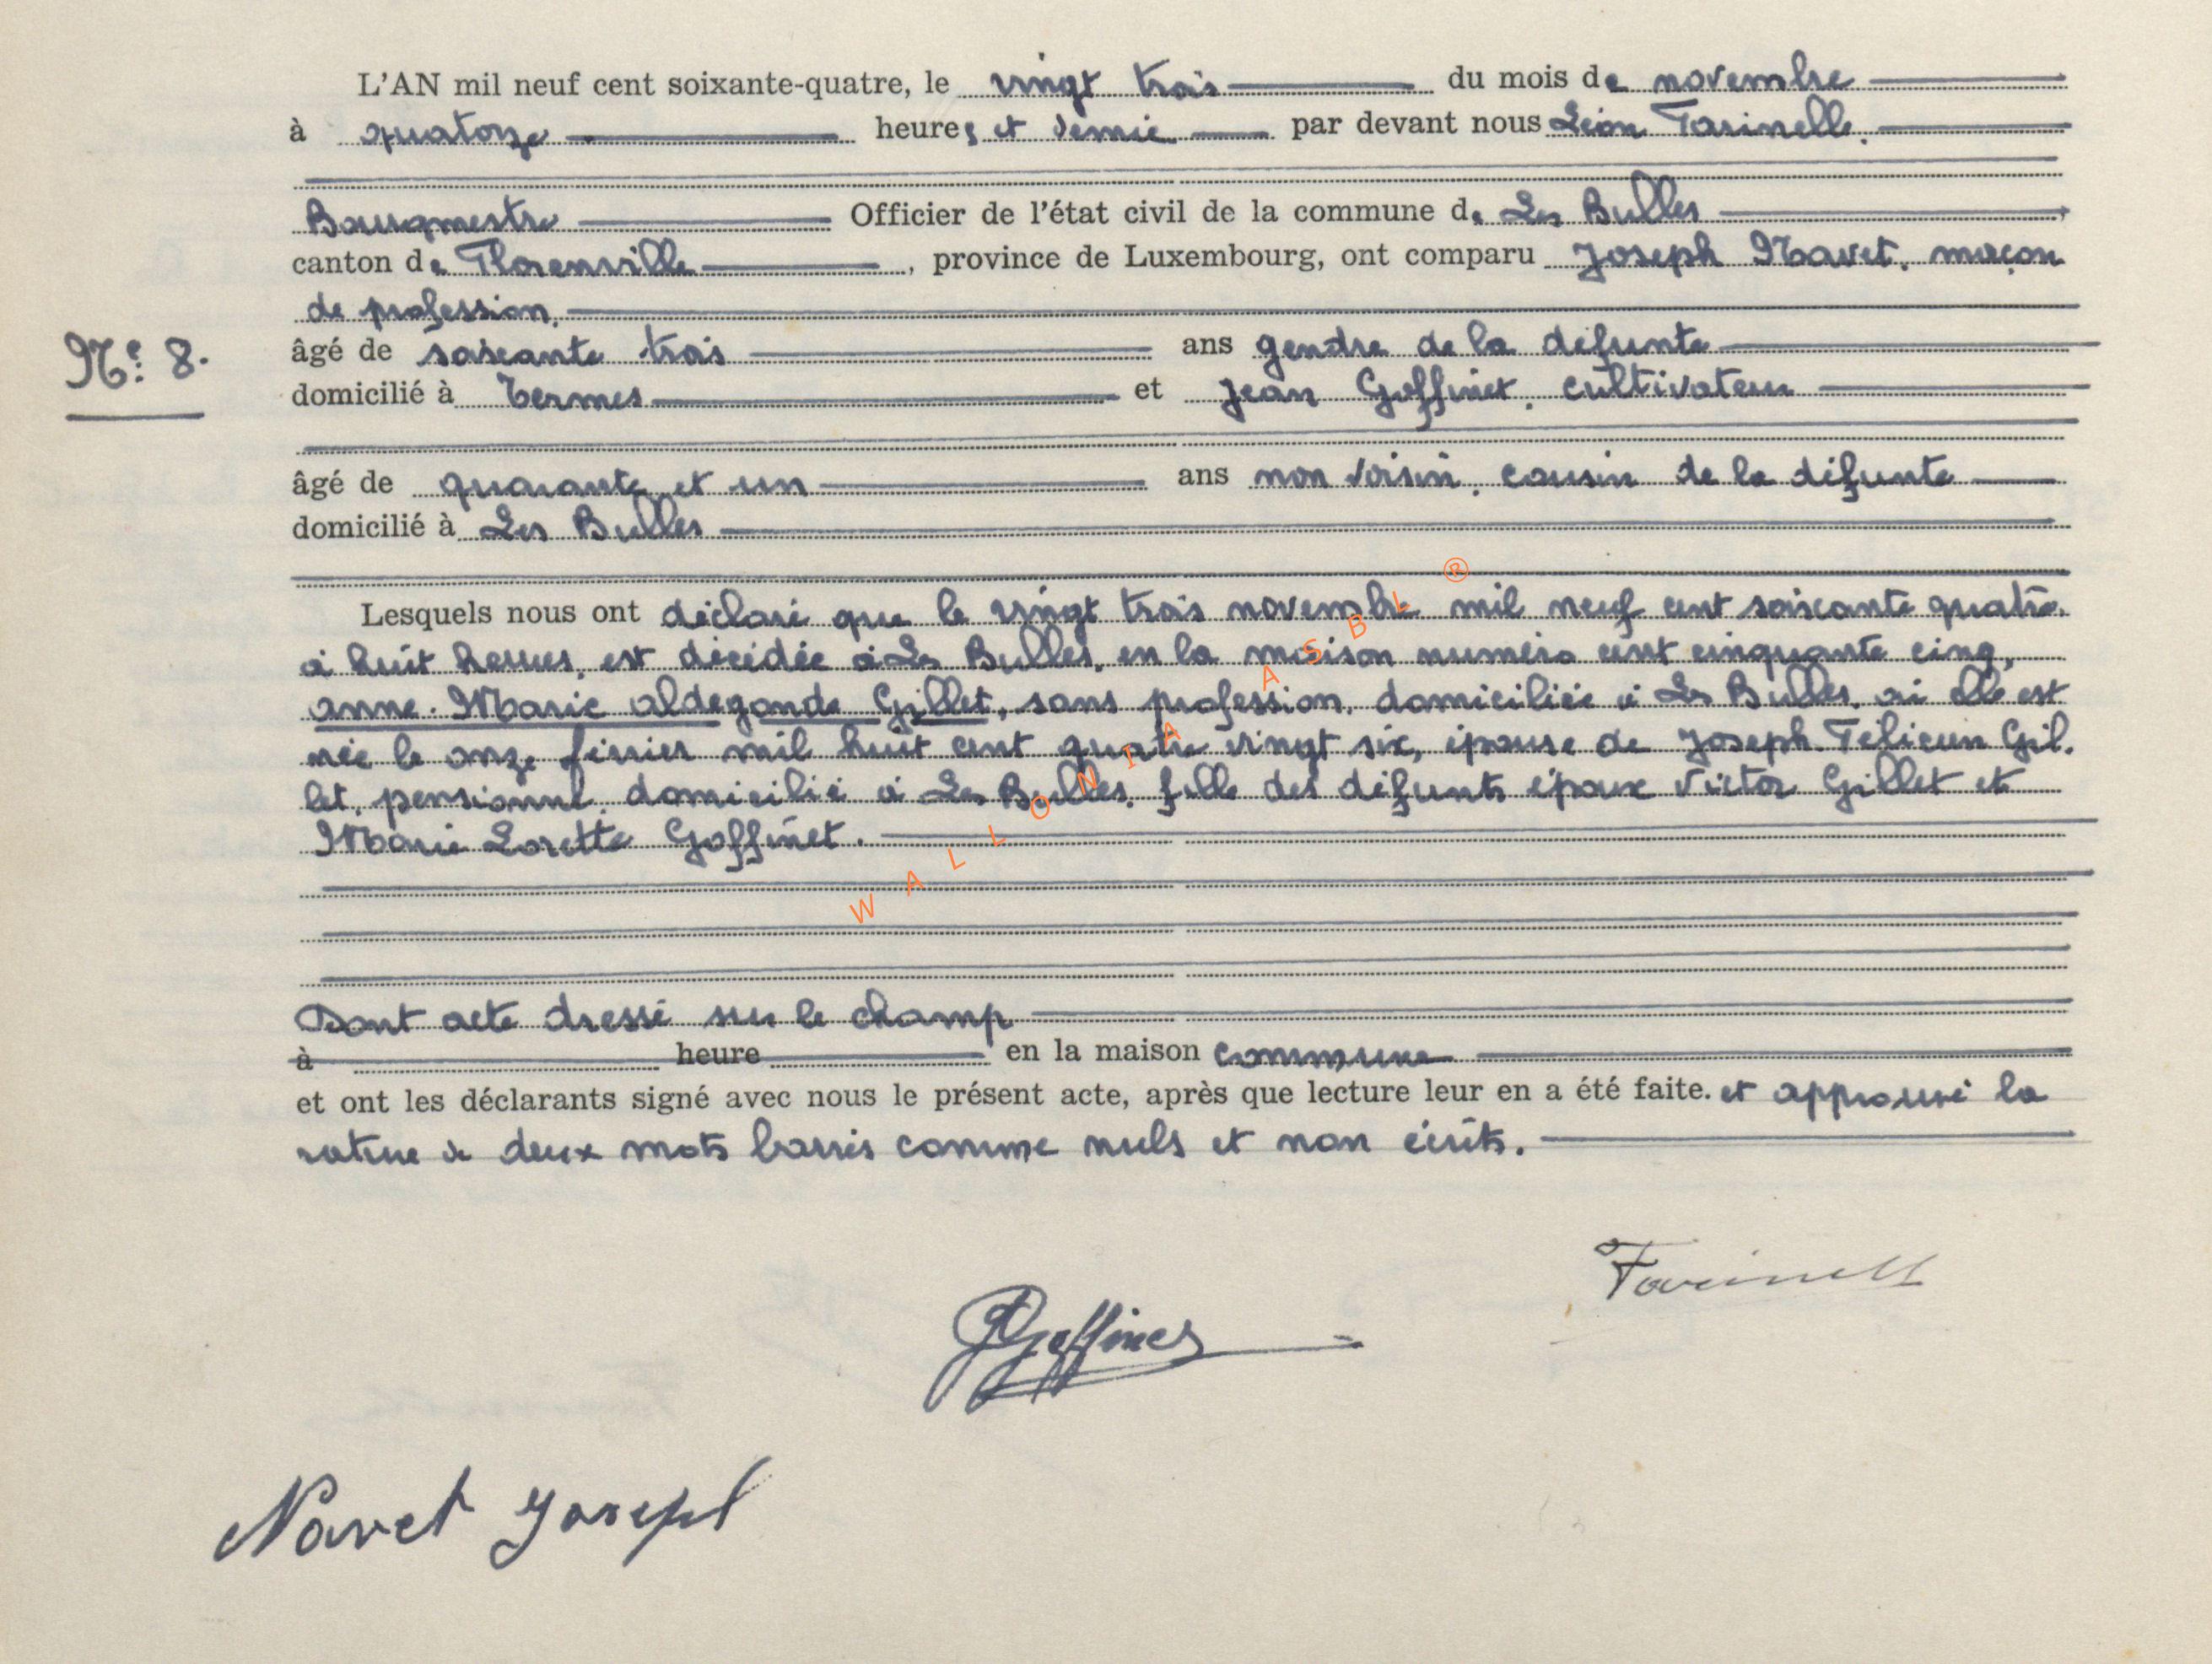 L'AN mil neuf cent soixante-quatre, le vingt trois du mois de novembre
à quatorze heures et demie par devant nous Léon Farinelle.
Bourgmestre Officier de l'état civil de la commune de Les Bulles
canton de Florenville, province de Luxembourg, ont comparu Joseph Navet, maçon
de profession.
N°: 8.
âgé de soixante trois ans gendre de la défunte
domicilié à Termes et Jean Goffinet, cultivateur
âgé de quarante et un ans non voisin, cousin de la défunte
domicilié à Les Bulles
Lesquels nous ont déclaré que le vingt trois novembre mil neuf cent soixante quatre.
à huit heures, est décédée à Les Bulles, en la maison numéro cent cinquante cinq,
Anne-Marie Aldegonde Gillet, sans profession, domiciliée à Les Bulles, où elle est
née le onze février mil huit cent quatre vingt six, épouse de Joseph-Félicien Gil-
let, pensionné, domicilié à Les Bulles, fille des défunts époux Victor Gillet et
Marie Lorette Goffinet.
WALLONIA ASBL ®
Dont acte dressé sur le champ
à heure en la maison commune
et ont les déclarants signé avec nous le présent acte, après que lecture leur en a été faite. et approuvé la
rature de deux mots barrés comme nuls et non écrits.
Farinelle
JGoffinet
Navet Joseph